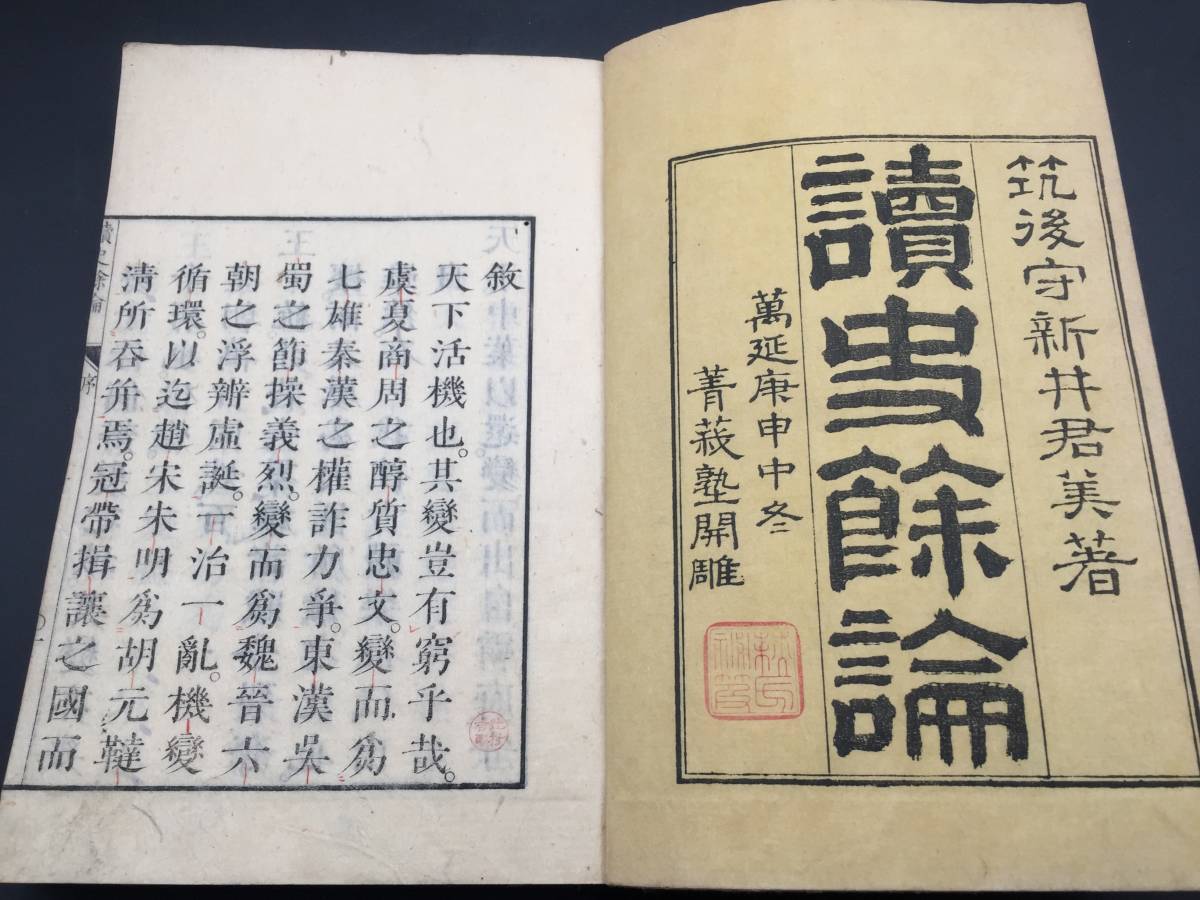 筑後守新井君美著
讀史餘論
萬延庚申中冬
菁莪塾開雕
敘
天下活機也。其變豈有窮乎哉。
虞夏商周之醇質忠文。變而爲
七雄秦漢之權詐力爭。東漢吳
蜀之節操義烈。變而爲魏晉六
朝之浮辨虛誕。一治一亂。機變
循環。以迄趙宋朱明爲胡元韃
淸所吞幷焉。冠帶揖讓之國而
讀史餘論
序
一